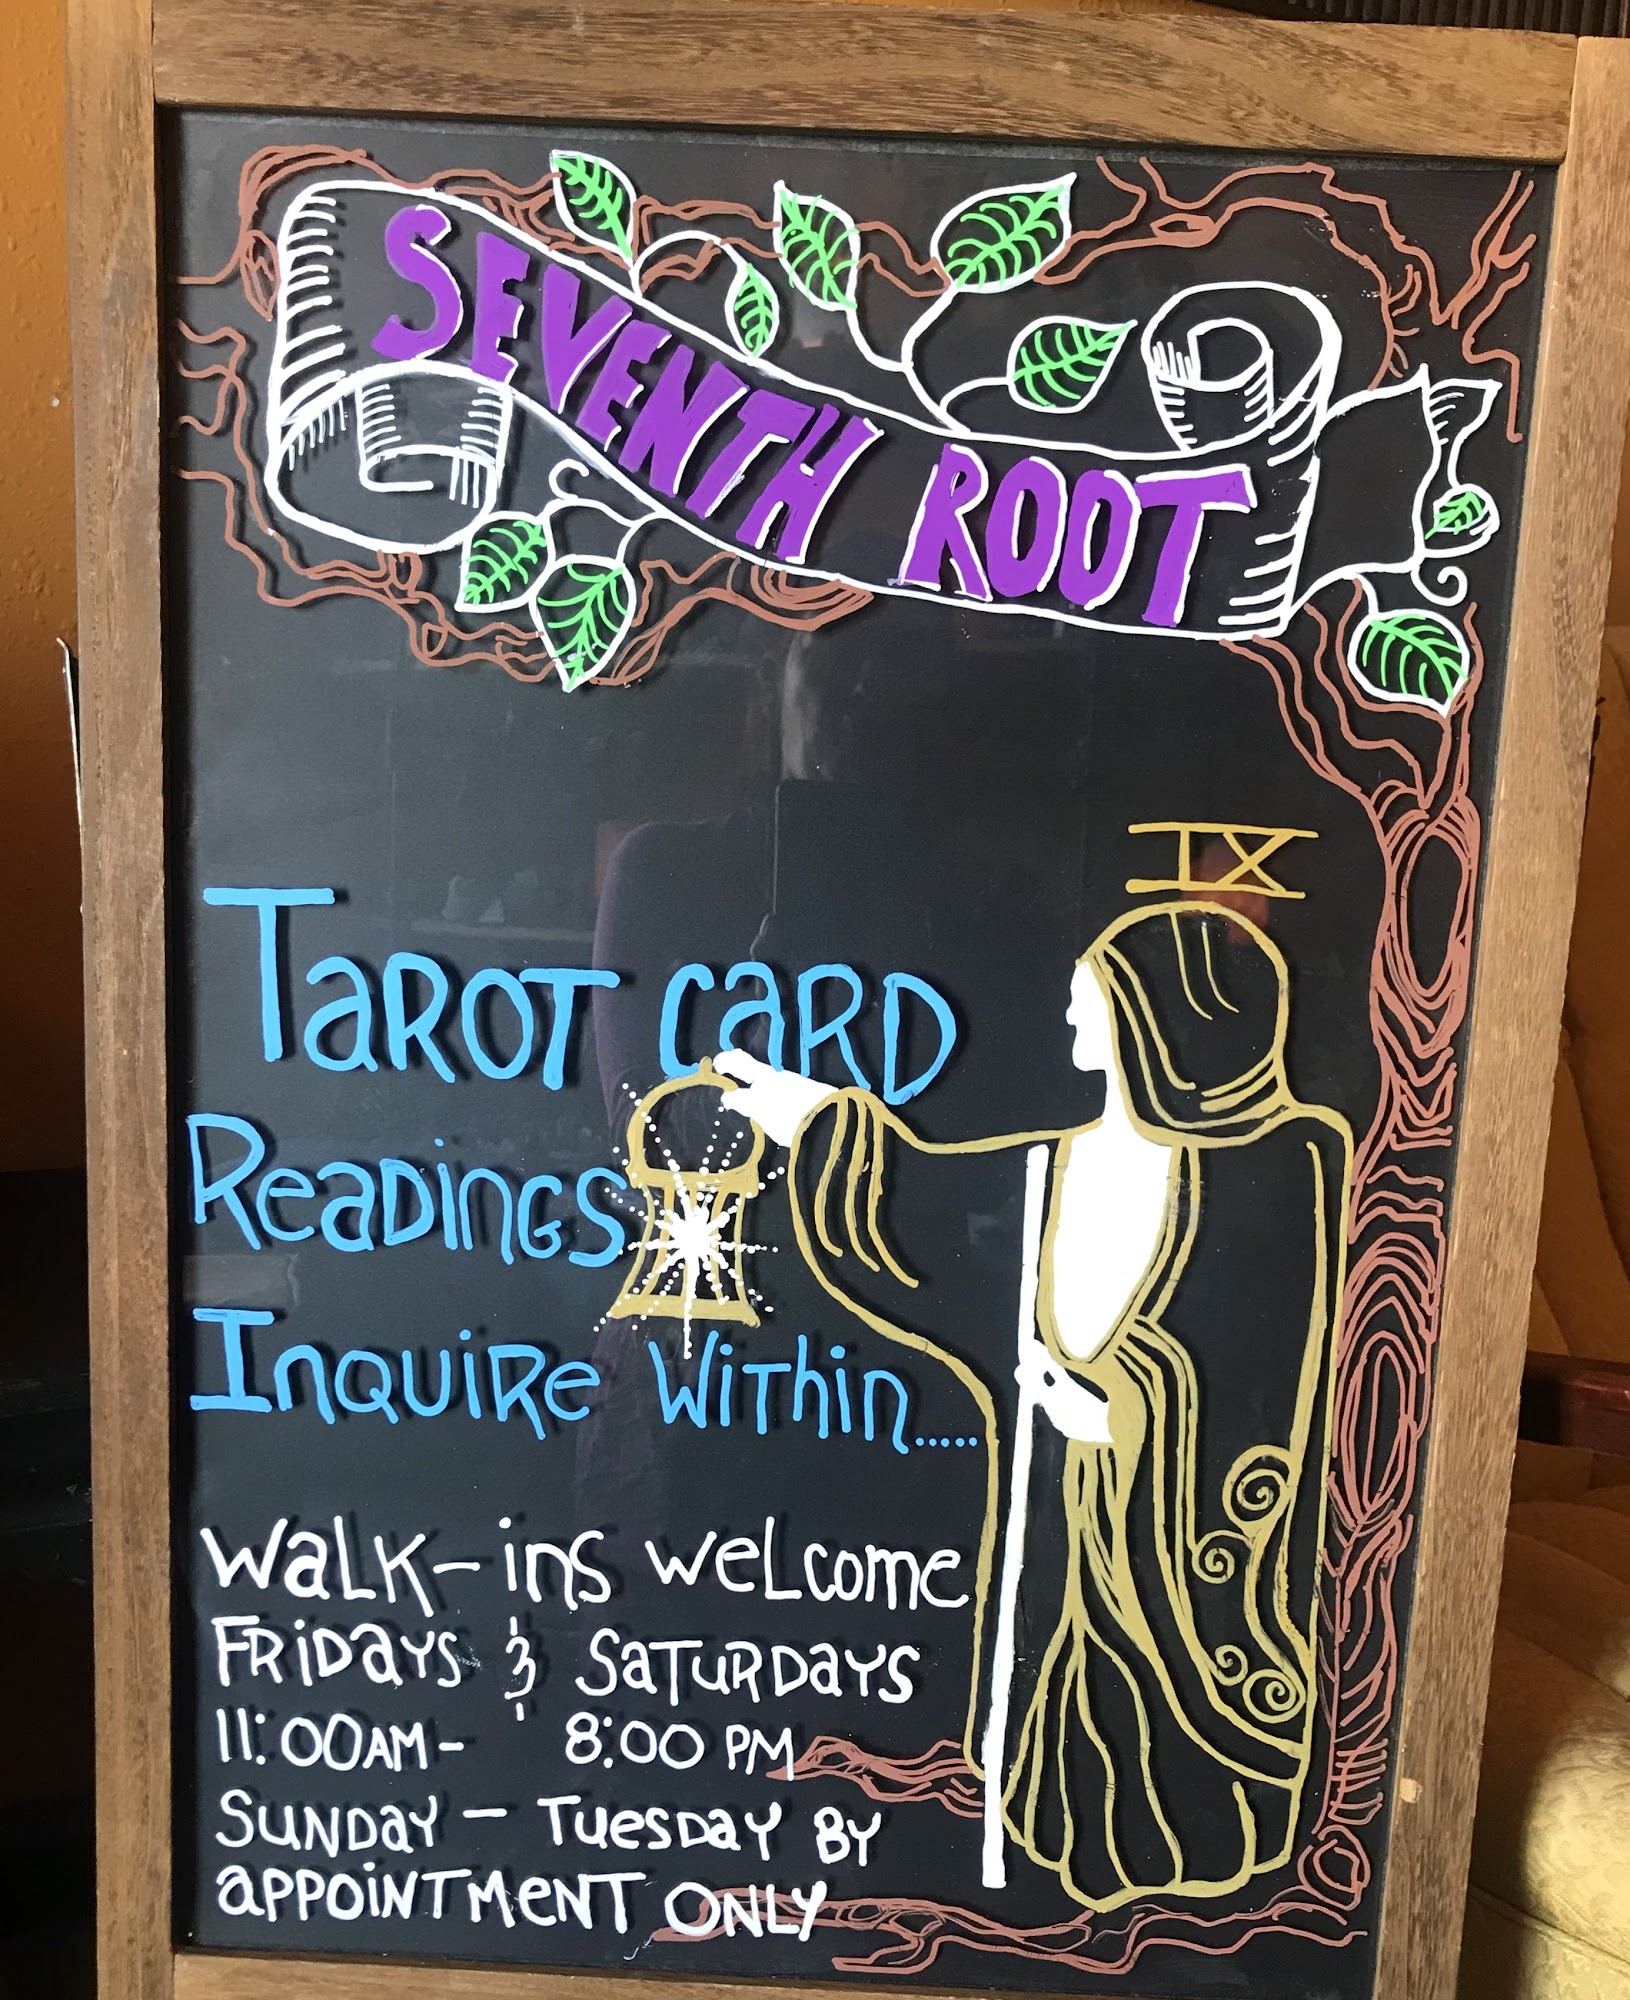 SEVENTH ROOT
IX
Tarot Card
Readings
Inquire Within.....
Walk-ins welcome
Fridays & Saturdays
11:00AM- 8:00 PM
Sunday - Tuesday By
appointment ONLY